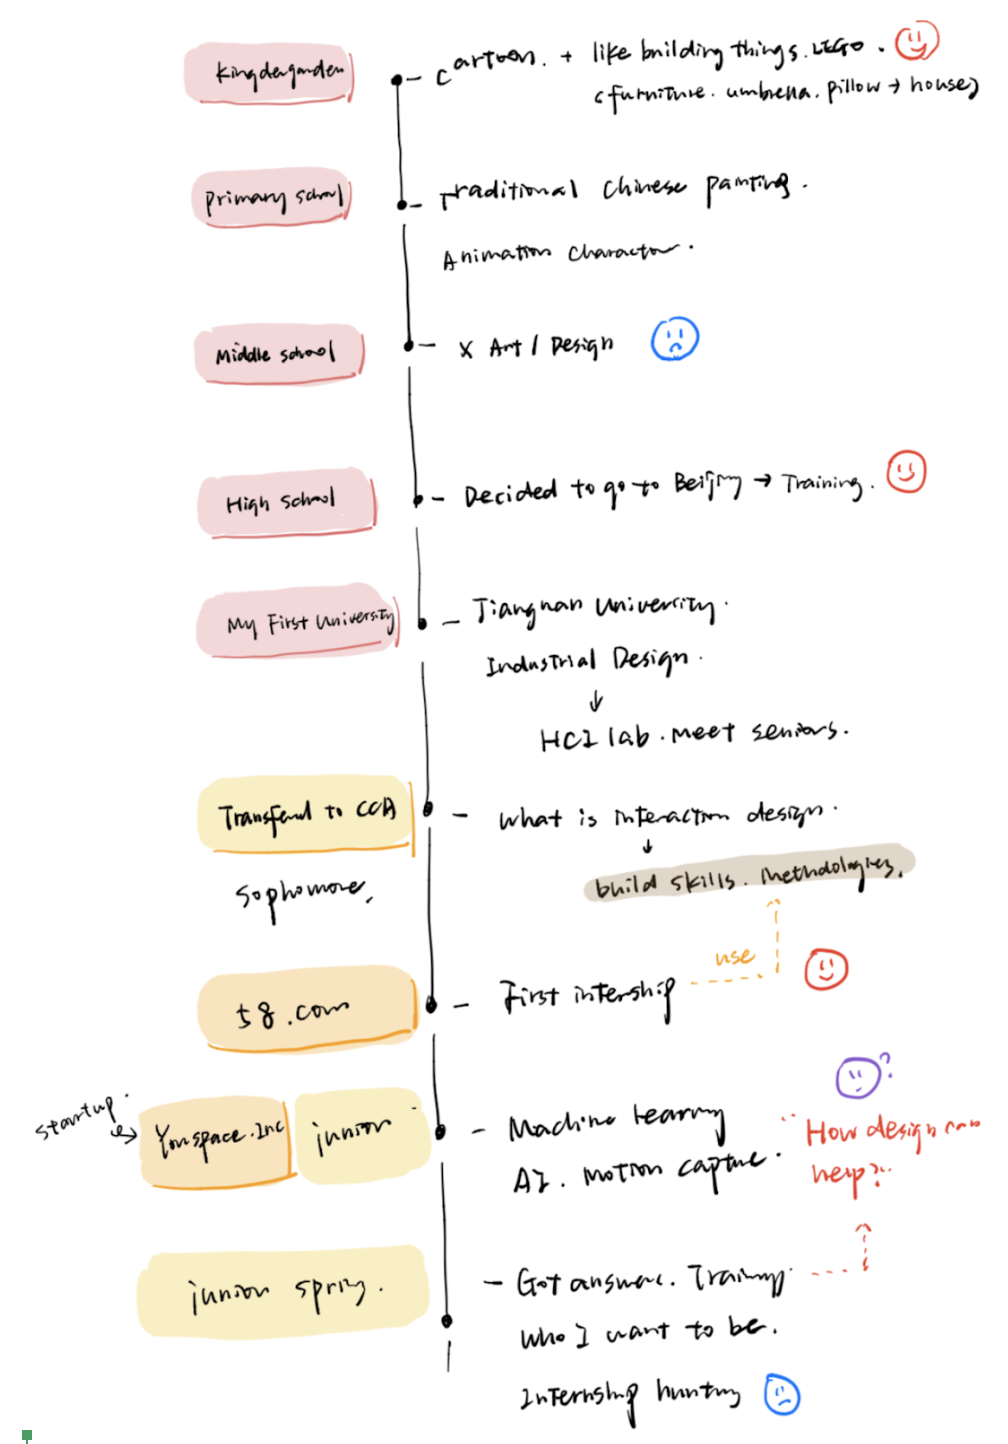 Kingdergarden
cartoon. + like building things. LEGO.
(furniture. umbrella. pillow → house)
Primary school
Traditional Chinese painting.
Animation Character.
Middle school
x Art / Design
High School
Decided to go to Beijing → Training.
My First University
Jiangnan University.
Industrial Design.
↓
HCI lab. meet seniors.
Transferd to CCA
what is interaction design.
↓
build skills. Methdologies.
sophomore.
use
58.com
First intership
startup.
Younspace.Inc
junior
?
Machine learning
AI. Motion capture.
"How design can
help?"
junior spring.
Got answers. Training.
who I want to be.
Internship hunting